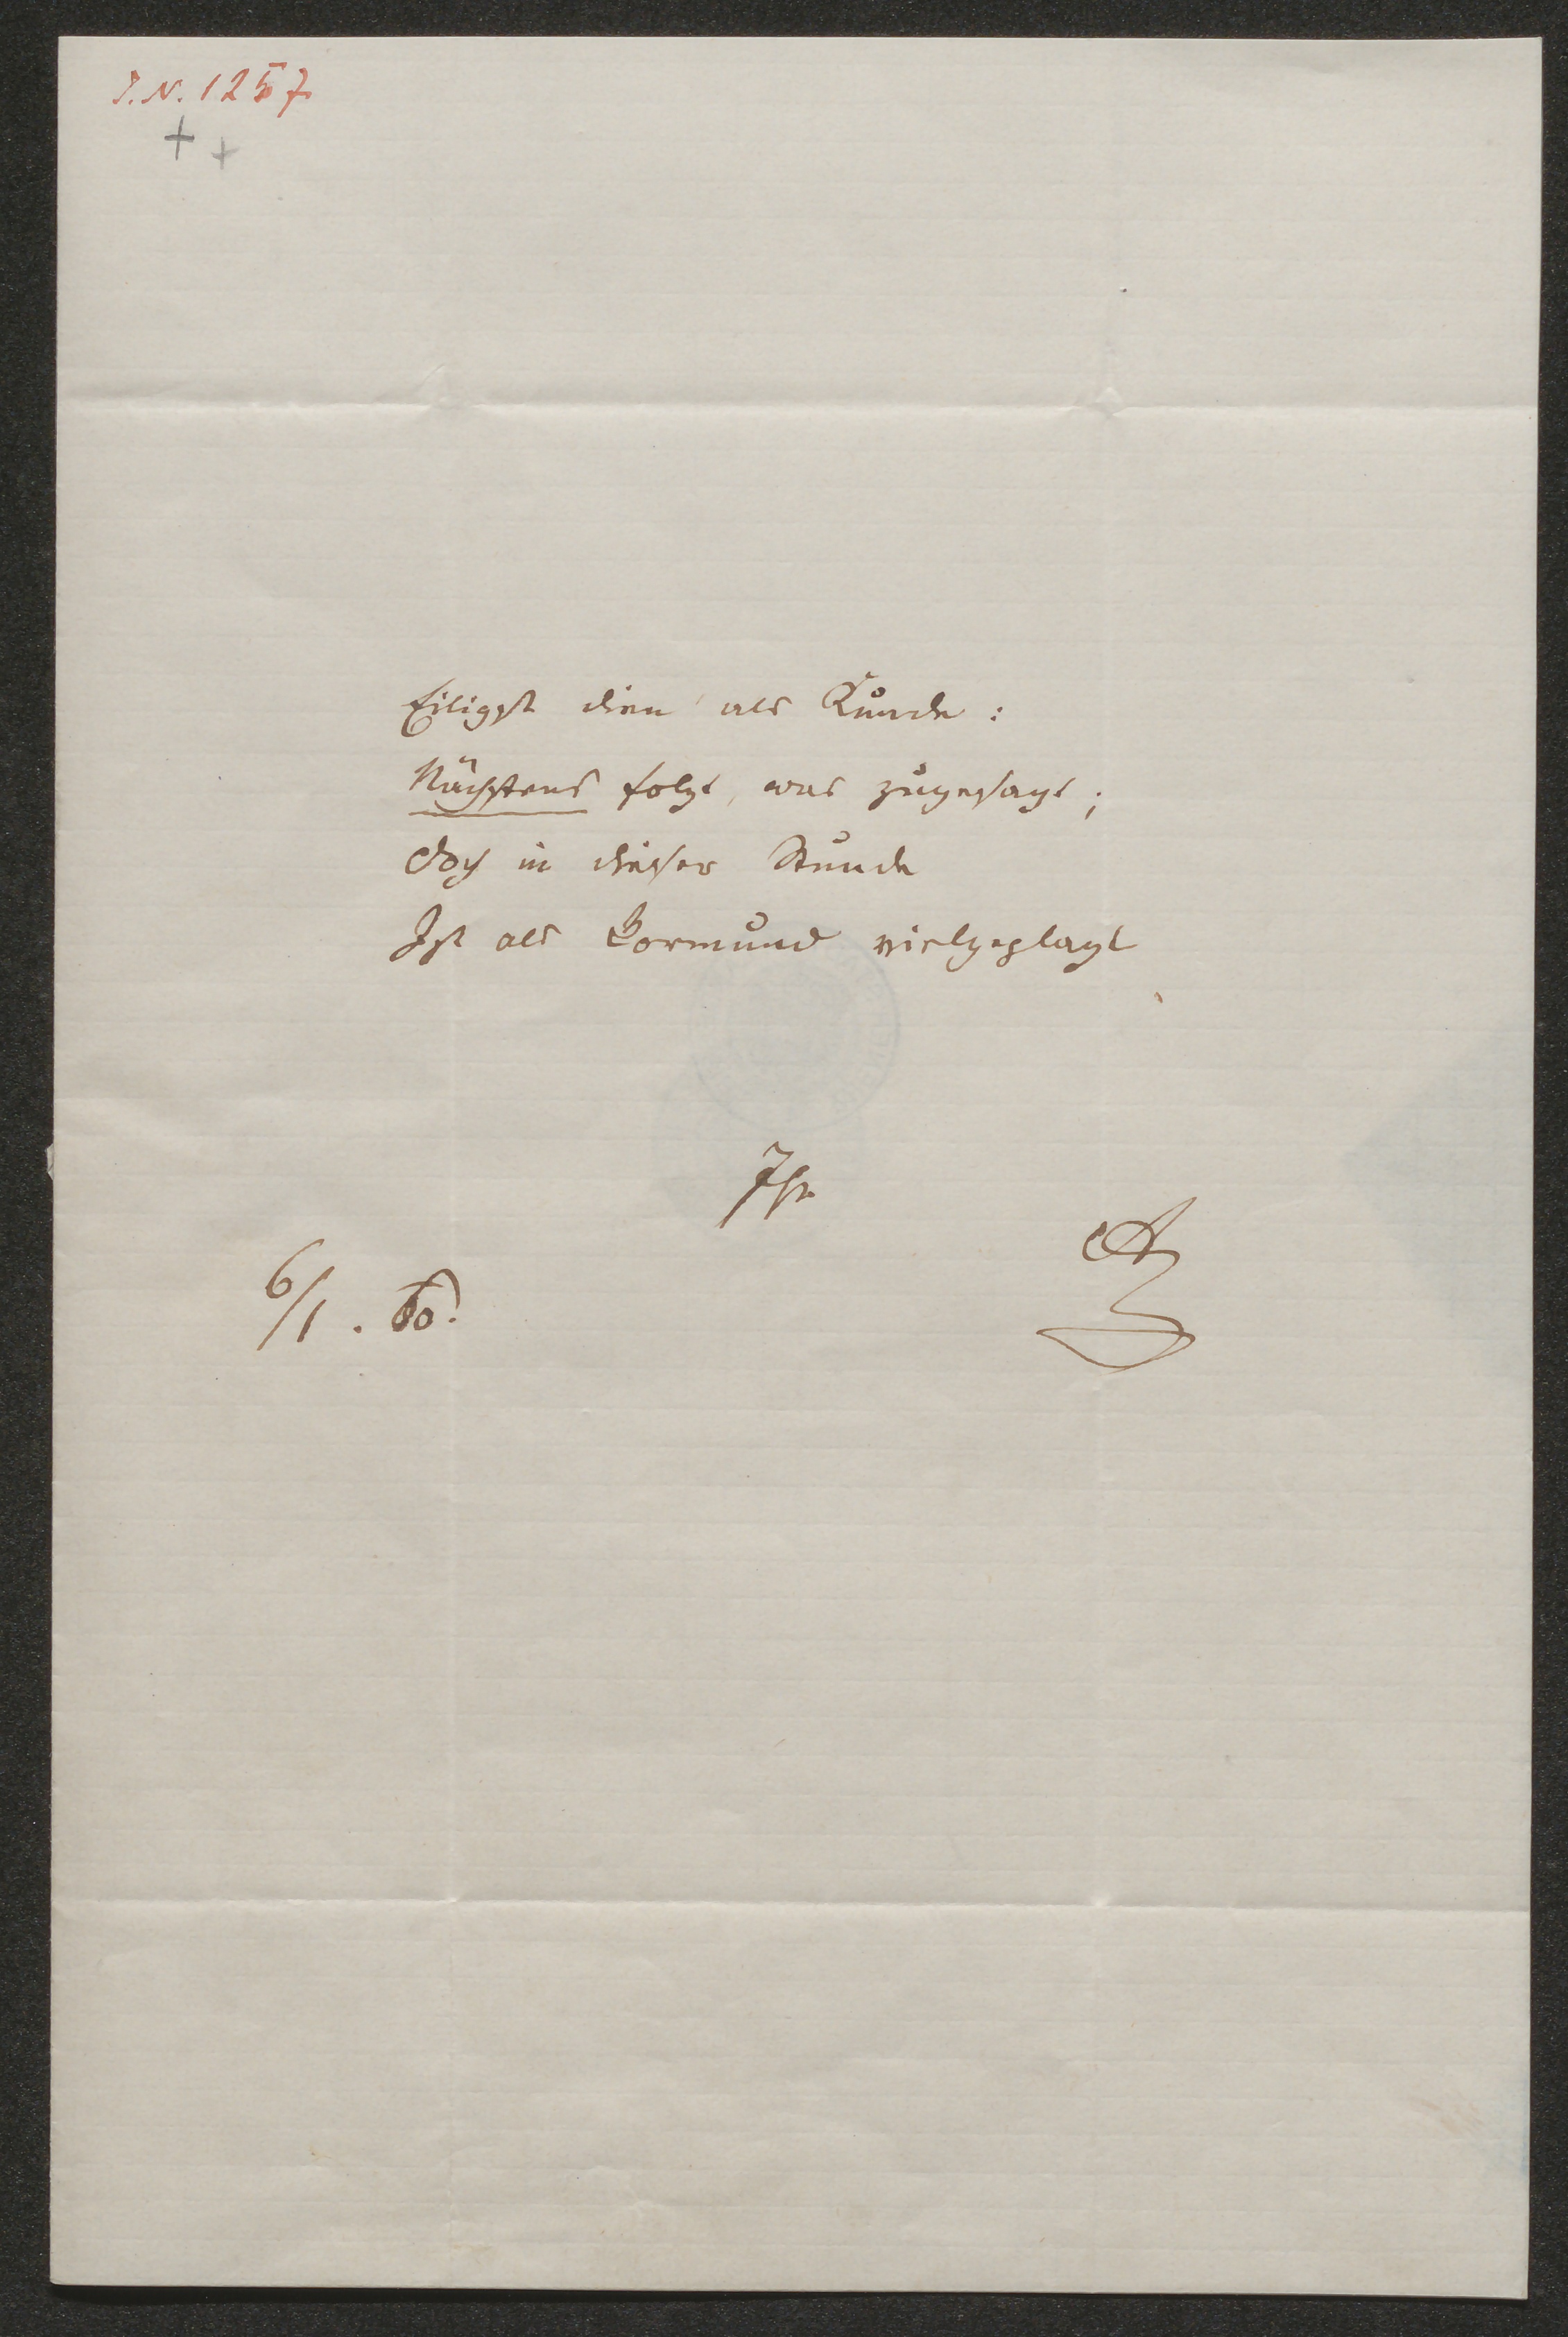 I.N. 1257
Eiligst dien' als Kunde:
Nächstens folgt, was zugesagt;
Doch in dieser Stunde
Ist als Vormund vielgeplagt
Ihr
6/1. 60.